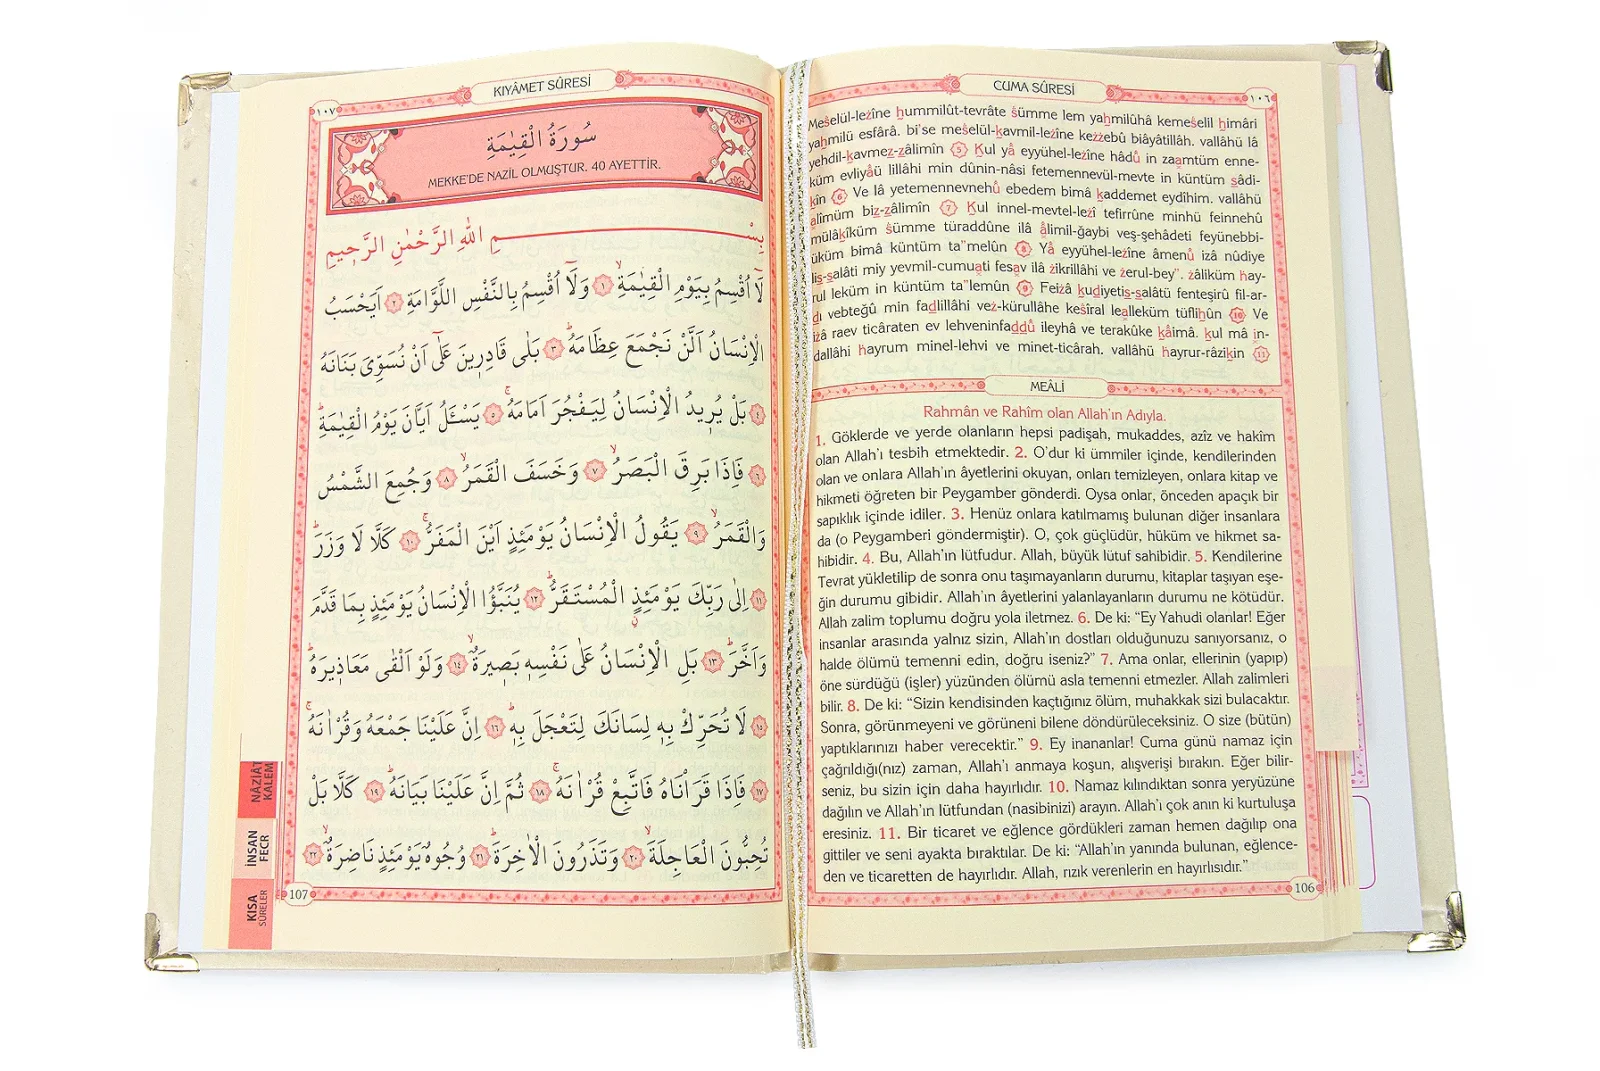 CUMA SÛRESİ
١٠٦
Meṡelül-leżîne ḥummilût-tevrâte ṡümme lem yaḥmilûhâ kemeṡelil ḥimâri
yaḥmilü esfârâ. bi'se meṡelül-kavmil-leżîne keżżebû biâyâtillâh. vallâhü lâ
yehdil-kavmez-zâlimîn ٥ Kul yâ eyyühel-leżîne hâdû in zaamtüm enne-
küm evliyâü lillâhi min dûnin-nâsi fetemennevül-mevte in küntüm sâdi-
kîn ٦ Ve lâ yetemennevnehû ebedem bimâ kaddemet eydîhim. vallâhü
alîmüm biz-zâlimîn ٧ Kul innel-mevtel-leżî tefirrûne minhü feinnehû
mülâkîküm ṡümme türaddûne ilâ âlimil-ğaybi veş-şehâdeti feyünebbi-
üküm bimâ küntüm ta"melûn ٨ Yâ eyyühel-leżîne âmenû iżâ nûdiye
lis-salâti miy yevmil-cumuati fesav ilâ żikrillâhi ve żerul-bey". żâliküm ḣay-
rul leküm in küntüm ta"lemûn ٩ Feiżâ kudiyetis-salâtü fenteşirû fil-ar-
dı vebteğû min fadlillâhi veż-kürullâhe keṡîral lealleküm tüfliḥûn ١٠ Ve
iżâ raev ticâraten ev lehveninfaddû ileyhâ ve terakûke kâimâ. kul mâ in-
dallâhi ḣayrum minel-lehvi ve minet-ticârah. vallâhü ḣayrur-râzikîn ١١
MEÂLİ
Rahmân ve Rahîm olan Allah'ın Adıyla.
1. Göklerde ve yerde olanların hepsi padişah, mukaddes, azîz ve hakîm
olan Allah'ı tesbih etmektedir. 2. O'dur ki ümmiler içinde, kendilerinden
olan ve onlara Allah'ın âyetlerini okuyan, onları temizleyen, onlara kitap ve
hikmeti öğreten bir Peygamber gönderdi. Oysa onlar, önceden apaçık bir
sapıklık içinde idiler. 3. Henüz onlara katılmamış bulunan diğer insanlara
da (o Peygamberi göndermiştir). O, çok güçlüdür, hüküm ve hikmet sa-
hibidir. 4. Bu, Allah'ın lütfudur. Allah, büyük lütuf sahibidir. 5. Kendilerine
Tevrat yükletilip de sonra onu taşımayanların durumu, kitaplar taşıyan eşe-
ğin durumu gibidir. Allah'ın âyetlerini yalanlayanların durumu ne kötüdür.
Allah zalim toplumu doğru yola iletmez. 6. De ki: "Ey Yahudi olanlar! Eğer
insanlar arasında yalnız sizin, Allah'ın dostları olduğunuzu sanıyorsanız, o
halde ölümü temenni edin, doğru iseniz?" 7. Ama onlar, ellerinin (yapıp)
öne sürdüğü (işler) yüzünden ölümü asla temenni etmezler. Allah zalimleri
bilir. 8. De ki: "Sizin kendisinden kaçtığınız ölüm, muhakkak sizi bulacaktır.
Sonra, görünmeyeni ve görüneni bilene döndürüleceksiniz. O size (bütün)
yaptıklarınızı haber verecektir." 9. Ey inananlar! Cuma günü namaz için
çağrıldığı(nız) zaman, Allah'ı anmaya koşun, alışverişi bırakın. Eğer bilir-
seniz, bu sizin için daha hayırlıdır. 10. Namaz kılındıktan sonra yeryüzüne
dağılın ve Allah'ın lütfundan (nasibinizi) arayın. Allah'ı çok anın ki kurtuluşa
eresiniz. 11. Bir ticaret ve eğlence gördükleri zaman hemen dağılıp ona
gittiler ve seni ayakta bıraktılar. De ki: "Allah'ın yanında bulunan, eğlence-
den ve ticaretten de hayırlıdır. Allah, rızık verenlerin en hayırlısıdır."
106
KIYÂMET SÛRESİ
١٠٧
سُورَةُ الْقِيٰمَةِ
MEKKE'DE NAZİL OLMUŞTUR. 40 AYETTİR.
بِسْمِ اللّٰهِ الرَّحْمٰنِ الرَّحٖيمِ
لَٓا اُقْسِمُ بِيَوْمِ الْقِيٰمَةِۙ ١ وَلَٓا اُقْسِمُ بِالنَّفْسِ اللَّوَّامَةِ ٢ اَيَحْسَبُ
الْاِنْسَانُ اَلَّنْ نَجْمَعَ عِظَامَهُؕ ٣ بَلٰى قَادِرٖينَ عَلٰٓى اَنْ نُسَوِّىَ بَنَانَهُ
٤ بَلْ يُرٖيدُ الْاِنْسَانُ لِيَفْجُرَ اَمَامَهُۚ ٥ يَسْـَٔلُ اَيَّانَ يَوْمُ الْقِيٰمَةِؕ
٦ فَاِذَا بَرِقَ الْبَصَرُۙ ٧ وَخَسَفَ الْقَمَرُۙ ٨ وَجُمِعَ الشَّمْسُ
وَالْقَمَرُۙ ٩ يَقُولُ الْاِنْسَانُ يَوْمَئِذٍ اَيْنَ الْمَفَرُّۚ ١٠ كَلَّا لَا وَزَرَؕ
١١ اِلٰى رَبِّكَ يَوْمَئِذٍ الْمُسْتَقَرُّؕ ١٢ يُنَبَّؤُا الْاِنْسَانُ يَوْمَئِذٍ بِمَا قَدَّمَ
وَاَخَّرَؕ ١٣ بَلِ الْاِنْسَانُ عَلٰى نَفْسِهٖ بَصٖيرَةٌۙ ١٤ وَلَوْ اَلْقٰى مَعَاذٖيرَهُؕ
١٥ لَا تُحَرِّكْ بِهٖ لِسَانَكَ لِتَعْجَلَ بِهٖؕ ١٦ اِنَّ عَلَيْنَا جَمْعَهُ وَقُرْاٰنَهُۚ
١٧ فَاِذَا قَرَاْنَاهُ فَاتَّبِعْ قُرْاٰنَهُۚ ١٨ ثُمَّ اِنَّ عَلَيْنَا بَيَانَهُؕ ١٩ كَلَّا بَلْ
تُحِبُّونَ الْعَاجِلَةَۙ ٢٠ وَتَذَرُونَ الْاٰخِرَةَؕ ٢١ وُجُوهٌ يَوْمَئِذٍ نَاضِرَةٌۙ ٢٢
107
NÂZİÂT
KALEM
İNSAN
FECR
KISA
SÛRELER